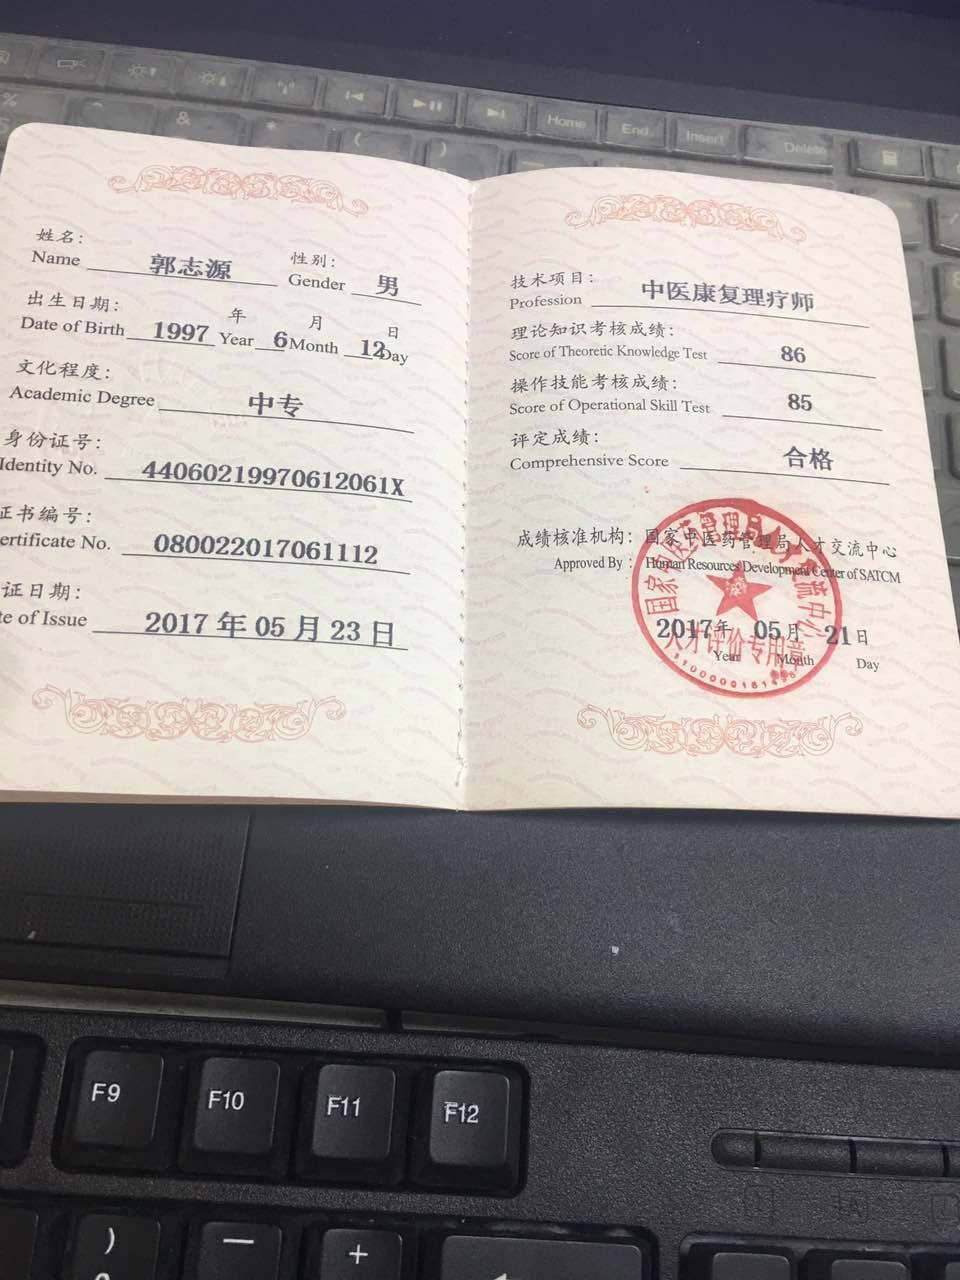 Home
End
Insert
Delete
%
&
*
(
)
姓名:
Name 郭志源
性别:
Gender 男
出生日期:
Date of Birth 1997 年 Year 6 月 Month 12 日 Day
文化程度:
Academic Degree 中专
身份证号:
Identity No. 44060219970612061X
证书编号:
ertificate No. 080022017061112
证日期:
te of Issue 2017 年 05 月 23 日
技术项目:
Profession 中医康复理疗师
理论知识考核成绩:
Score of Theoretic Knowledge Test 86
操作技能考核成绩:
Score of Operational Skill Test 85
评定成绩:
Comprehensive Score 合格
成绩核准机构: 国家中医药管理局人才交流中心
Approved By : Human Resources Development Center of SATCM
国家中医药管理局人才交流中心
人才评价专用章
2017 年 05 月 21 日
Year Month Day
F9
F10
F11
F12
)
—
+